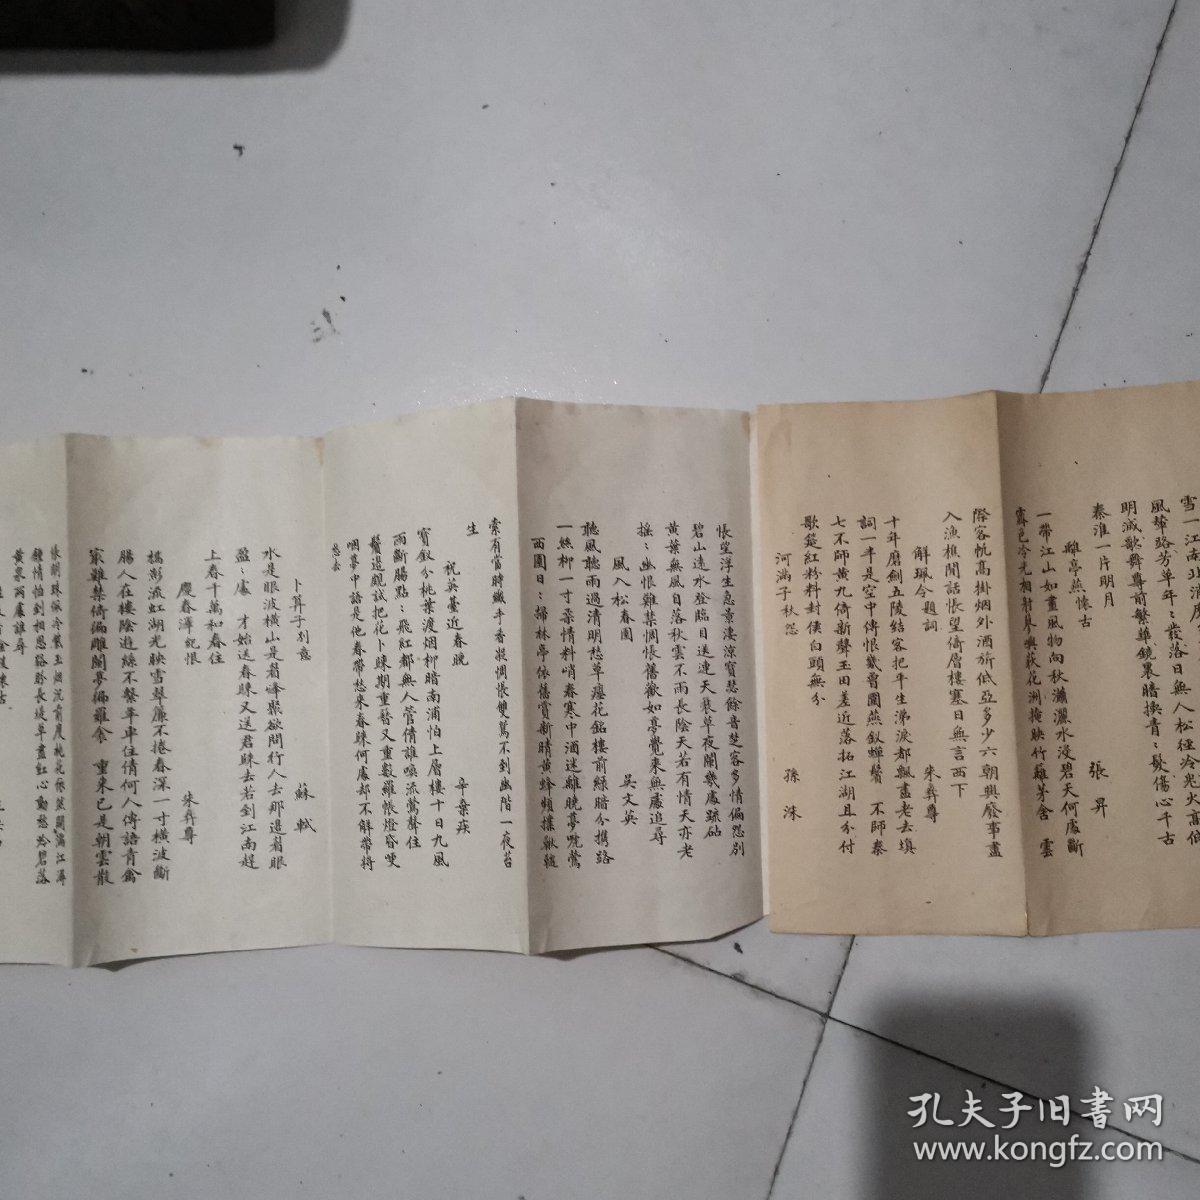 雪一江南北消
風輦路芳草年〻發落日無人松徑冷鬼火高低
明滅歌舞尊前繁華鏡裏暗換青〻髮傷心千古
秦淮一片明月
離亭燕懷古　張昇
一帶江山如畫風物向秋瀟灑水浸碧天何處斷
霽色冷光相射蓼嶼荻花洲掩映竹籬茅舍　雲
際客帆高掛烟外酒旂低亞多少六朝興廢事盡
入漁樵閒話悵望倚層樓寒日無言西下
解珮令題詞　朱彝尊
十年磨劍五陵結客把平生涕淚都飄盡老去填
詞一半是空中傳恨幾曾圍燕釵蟬鬢　不師秦
七不師黃九倚新聲玉田差近落拓江湖且分付
歌筵紅粉料封侯白頭無分
河滿子秋怨　孫洙
悵望浮生急景淒涼寶瑟餘音楚客多情偏怨別
碧山遠水登臨目送連天衰草夜闌幾處疏砧
黃葉無風自落秋雲不雨長陰天若有情天亦老
搖〻幽恨難禁惆悵舊歡如夢覺來無處追尋
風入松春園　吳文英
聽風聽雨過清明愁草瘞花銘樓前綠暗分攜路
一絲柳一寸柔情料峭春寒中酒迷離曉夢啼鶯
西園日〻掃林亭依舊賞新晴黃蜂頻撲鞦韆
索有當時纖手香凝惆悵雙鴛不到幽階一夜苔
生
祝英臺近春晚　辛棄疾
寶釵分桃葉渡烟柳暗南浦怕上層樓十日九風
雨斷腸點〻飛紅都無人管倩誰喚流鶯聲住
鬢邊覷試把花卜歸期重簪又重數羅帳燈昏哽
咽夢中語是他春帶愁來春歸何處却不解帶將
愁去
卜算子別意　蘇軾
水是眼波橫山是眉峰聚欲問行人去那邊眉眼
盈〻處　才始送春歸又送君歸去若到江南趕
上春千萬和春住
慶春澤紀恨　朱彝尊
橋影流虹湖光映雪翠簾不捲春深一寸橫波斷
腸人在樓陰遊絲不繫羊車住倩何人傳語青禽
最難禁倚徧雕闌夢徧羅衾　重來已是朝雲散
悵明珠佩冷紫玉烟沉前度桃花依然開滿江潯
鍾情怕到相思路盼長堤草盡紅心動愁吟碧落
黃泉兩處誰尋